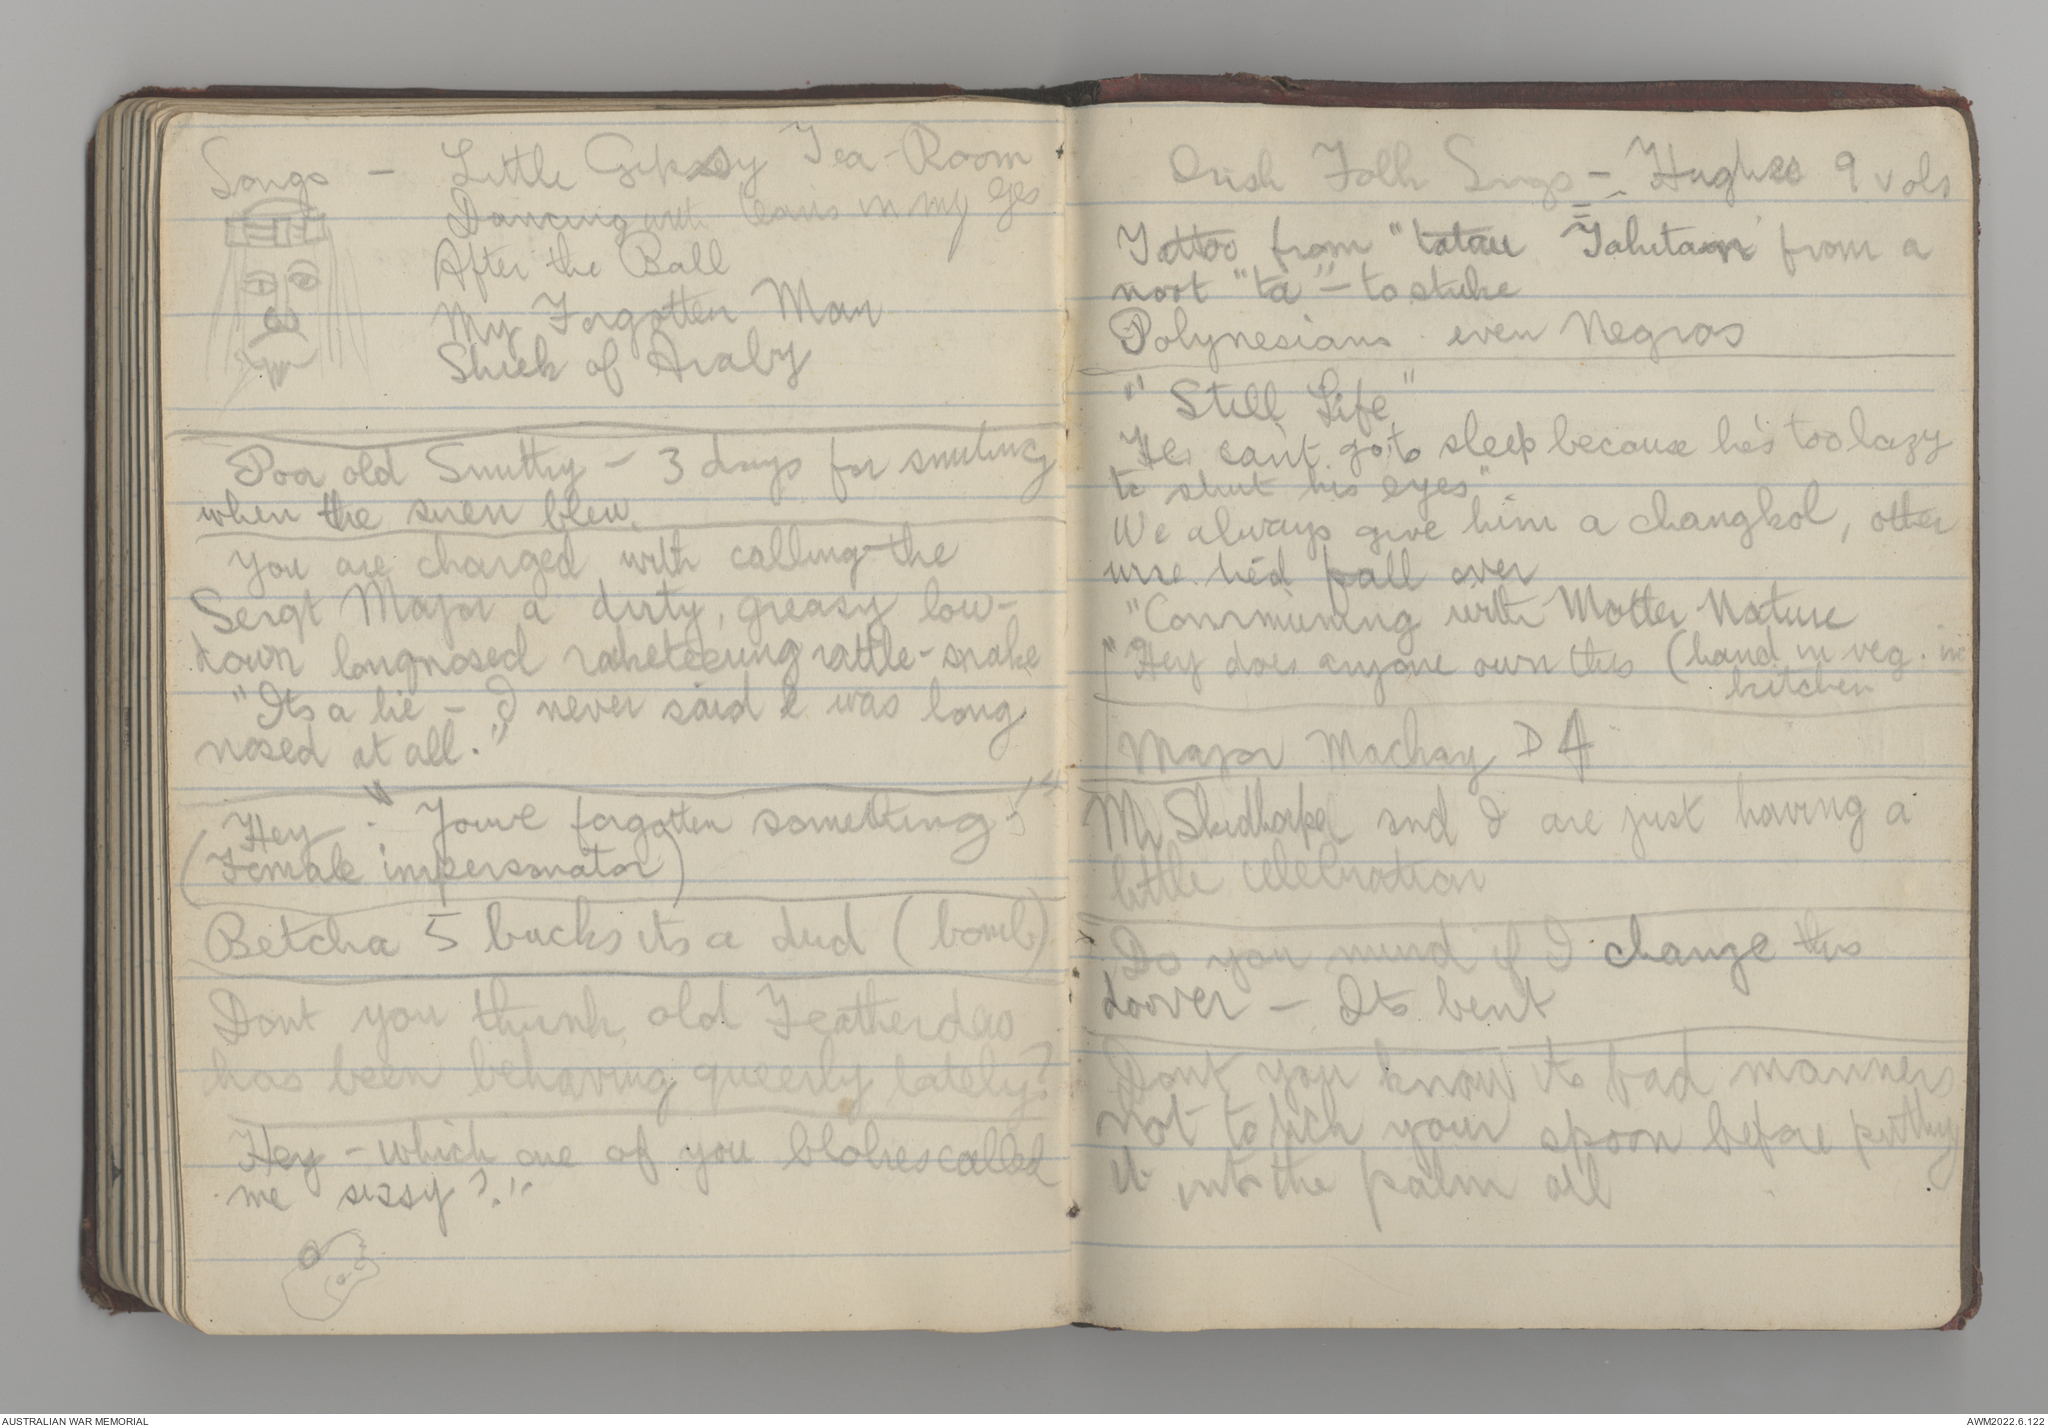 Songs - Little Gipsy Tea-Room
Dancing with tears in my eyes
After the Ball
My Forgotten Man
Shiek of Araby
Poor old Smithy - 3 days for smiling
when the siren blew.
You are charged with calling the
Sergt Major a dirty, greasy low-
down longnosed raketeering rattle-snake
"Its a lie - I never said he was long
nosed at all."
Hey - "Youve forgotten something!"
(Female impersonator)
Betcha 5 bucks its a dud (bomb)
Dont you think old
has been behaving queerly lately?
Hey - which one of you blokes called
me sissy?!"
Irish Folk Songs - Hughes 9 vols
Tattoo from "tatau Tahitian from a
root "ta" - to strike
Polynesians even Negros
"Still Life"
He can't go to sleep because he's too lazy
to shut his eyes"
We always give him a changkol, other
wise he'd fall over
"Communing with Mother Nature
"Hey does anyone own this (hand in veg. in
kitchen
Major Mackay D A
Mr and I are just having a
little celebration
Do you mind if I change this
doover - Its bent
Dont you know its bad manners
not to lick your spoon before putting
it into the palm oil
AUSTRALIAN WAR MEMORIAL
AWM2022.6.122